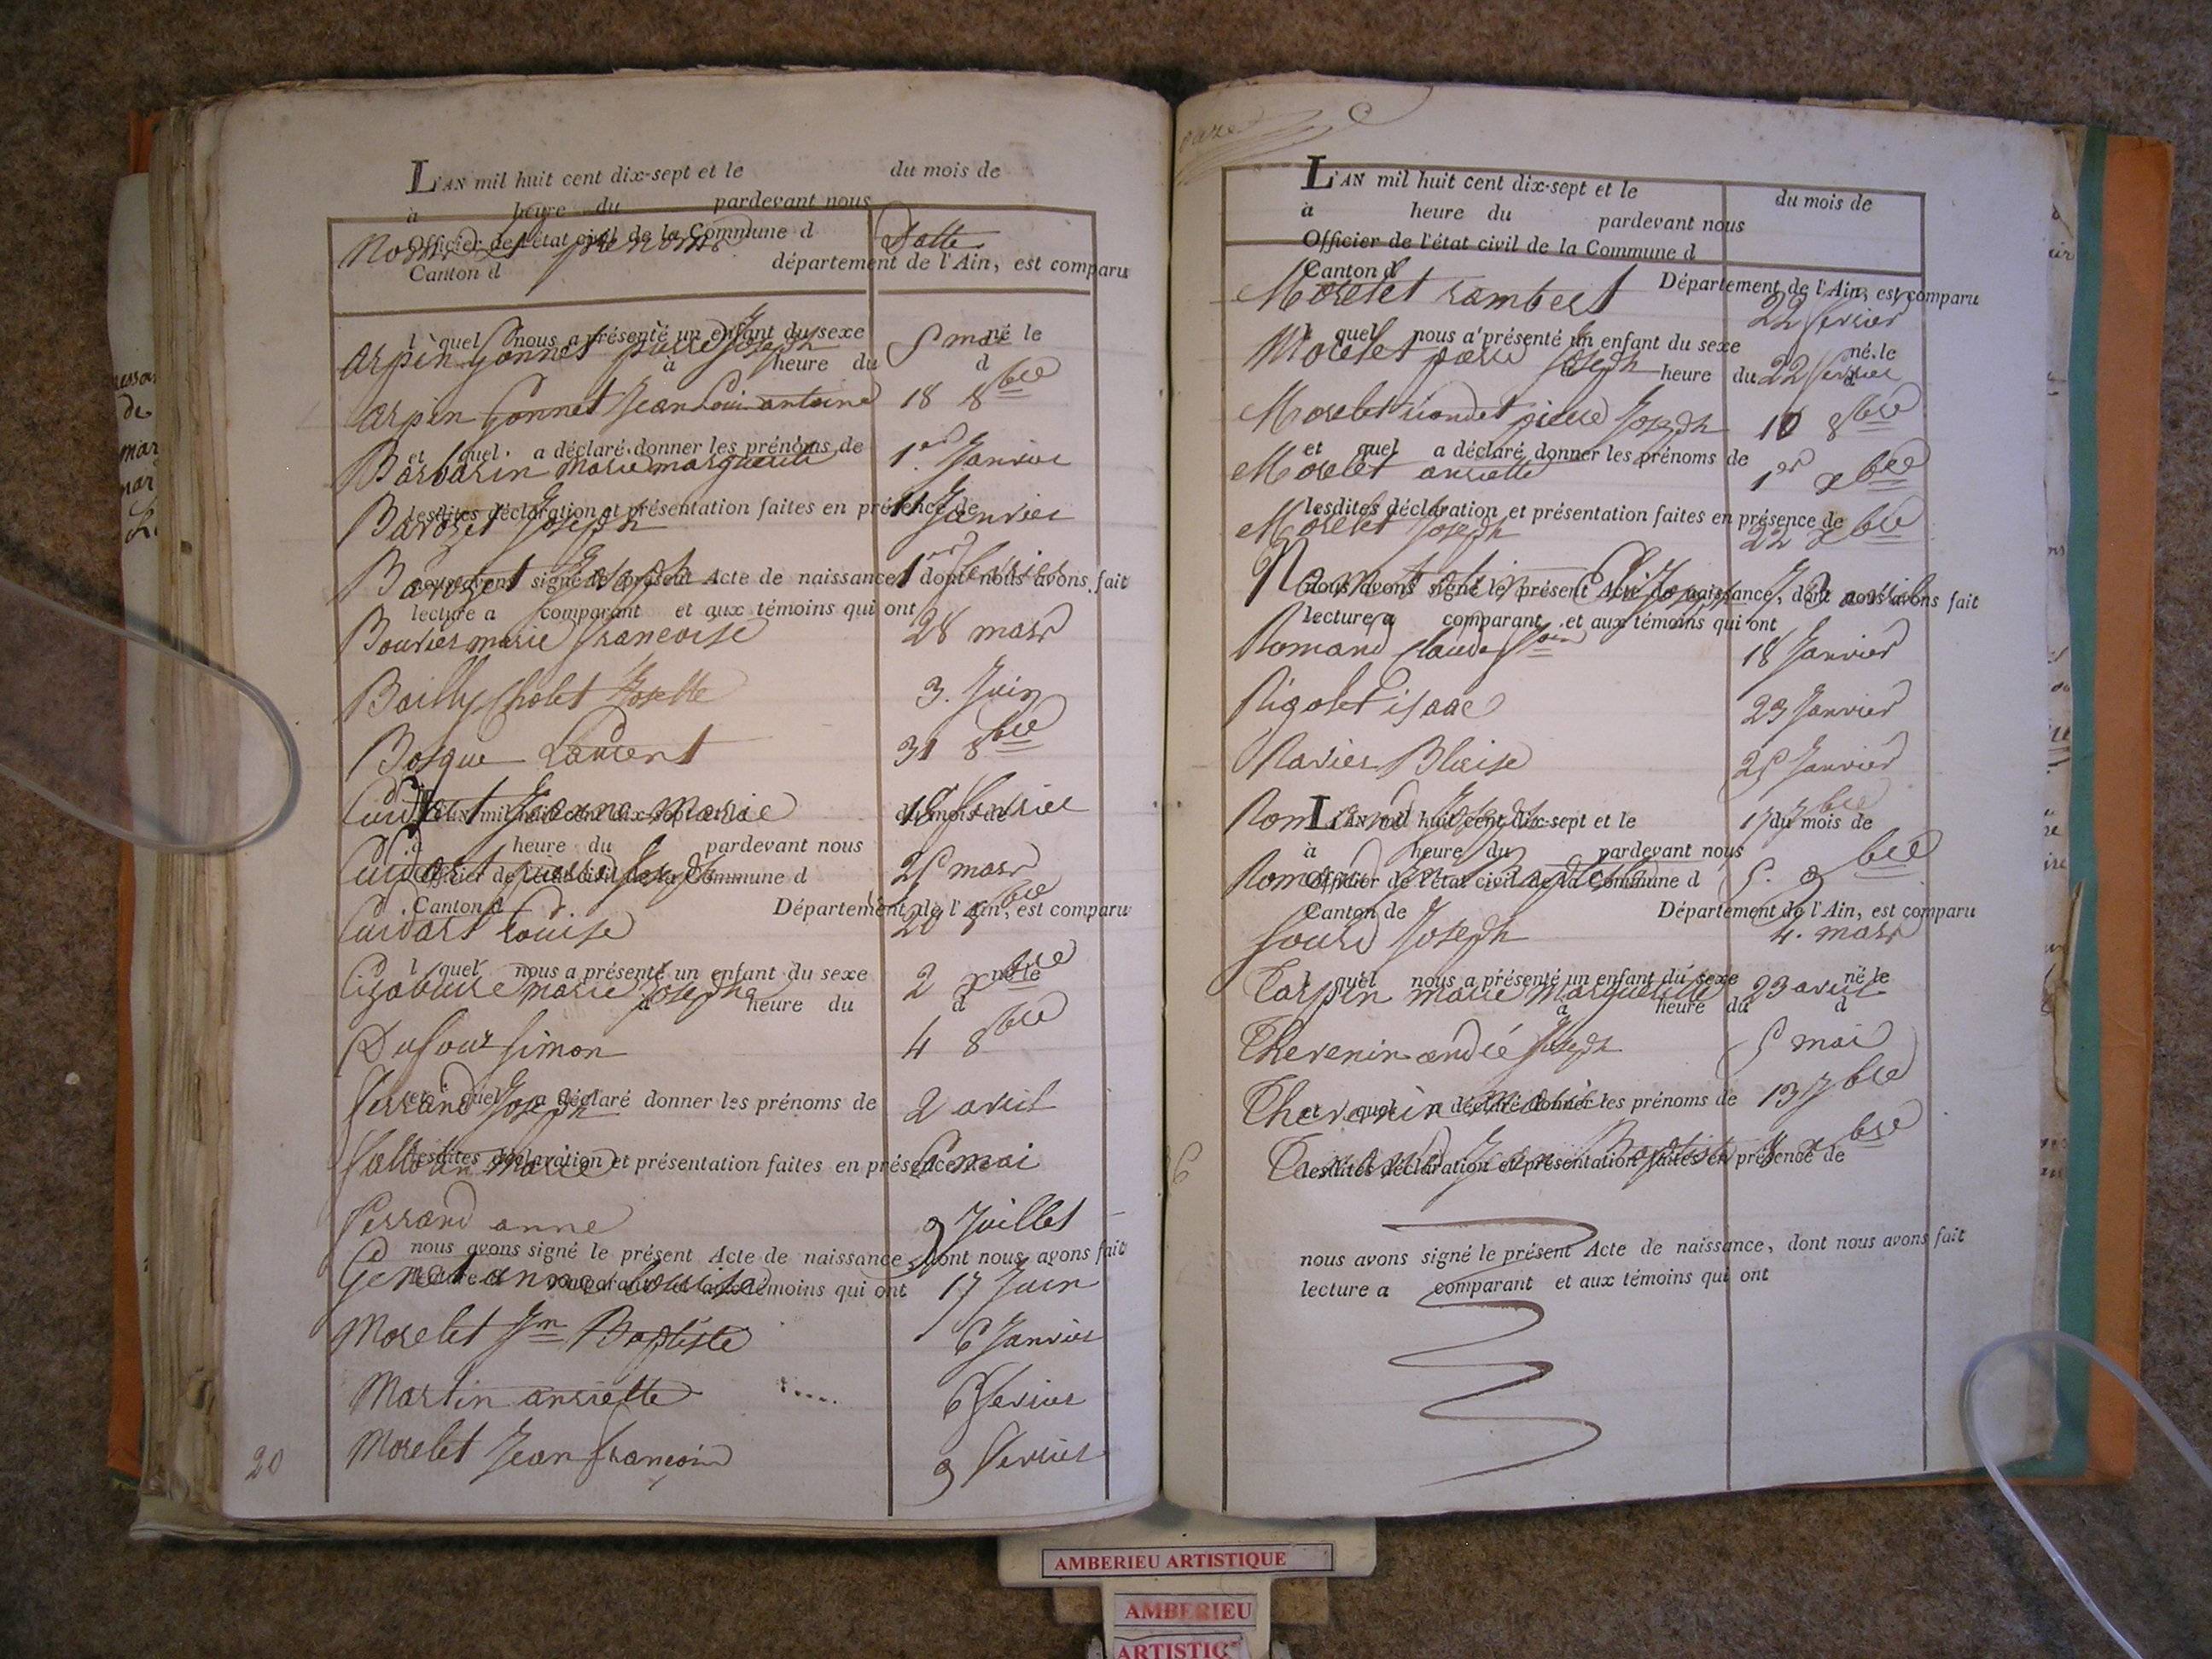 L'AN mil huit cent dix-sept et le du mois de
à heure du pardevant nous
Officier de l'état civil de la Commune d
Noms et prénoms Datte
Canton d département de l'Ain, est comparu
l quel nous a présenté un enfant du sexe né le
arpin Gonnet pierre Joseph 5 mai
à heure du d
arpin Gonnet Jean Louis antoine 18 8bre
et quel a déclaré donner les prénoms de
Barbarin Marie margueritte 1er Janvier
lesdites déclaration et présentation faites en présence de
Barozet Joseph 11 Janvier
Barozet Joseph 1er fevrier
nous avons signé le présent Acte de naissance, dont nous avons fait
lecture a comparant et aux témoins qui ont
Bouvier marie francoise 28 mars
Bailly Cholet Josette 3. Juin
Bosque Laurent 31 8bre
Cuidart Jeanne Marie 18 fevrier
L'AN mil huit cent dix-sept et le du mois de
à heure du pardevant nous
Cuidart pierre Joseph 25 mars
Officier de l'état civil de la Commune d
Canton d Département de l'Ain, est comparu
Cuidart Louise 20 8bre
l quel nous a présenté un enfant du sexe né le
marie Josephe 2 xbre
à heure du d
Dufour Simon 4 8bre
et quel a déclaré donner les prénoms de
ferrand Joseph 2 avril
lesdites déclaration et présentation faites en présence de
Marie 6 mai
ferrand anne 9 Juillet
nous avons signé le présent Acte de naissance, dont nous avons fait
Genet anne Louise 17 Juin
lecture a comparant et aux témoins qui ont
Morelet Jn Baptiste 6 Janvier
Martin anriette 6 fevrier
Morelet Jean francois 9 fevrier
20
L'AN mil huit cent dix-sept et le du mois de
à heure du pardevant nous
Officier de l'état civil de la Commune d
Canton d Département de l'Ain, est comparu
Morelet rambert 22 fevrier
l quel nous a présenté un enfant du sexe né le
Morelet pierre Joseph 22 fevrier
à heure du d
Morelet riondet pierre Joseph 10 8bre
et quel a déclaré donner les prénoms de
Morelet anriette 1er xbre
lesdites déclaration et présentation faites en présence de
Morelet Joseph 22 xbre
nous avons signé le présent Acte de naissance, dont nous avons fait
lecture a comparant et aux témoins qui ont
Romand Claude 18 Janvier
Rigolet isaac 23 Janvier
Ravier Blaise 25 Janvier
Romand Joseph 17 7bre
L'AN mil huit cent dix-sept et le du mois de
à heure du pardevant nous
Romand Jn Baptiste 5. 9bre
Officier de l'état civil de la Commune d
Canton de Département de l'Ain, est comparu
Sourd Joseph 4. mars
l quel nous a présenté un enfant du sexe né le
Tarpin marie Margueritte 23 avril
à heure du d
Thevenin andré Joseph 5 mai
Thevenin marie 13 7bre
et quel a déclaré donner les prénoms de
Jean Baptiste 8 xbre
lesdites déclaration et présentation faites en présence de
nous avons signé le présent Acte de naissance, dont nous avons fait
lecture a comparant et aux témoins qui ont
AMBERIEU ARTISTIQUE
AMBERIEU